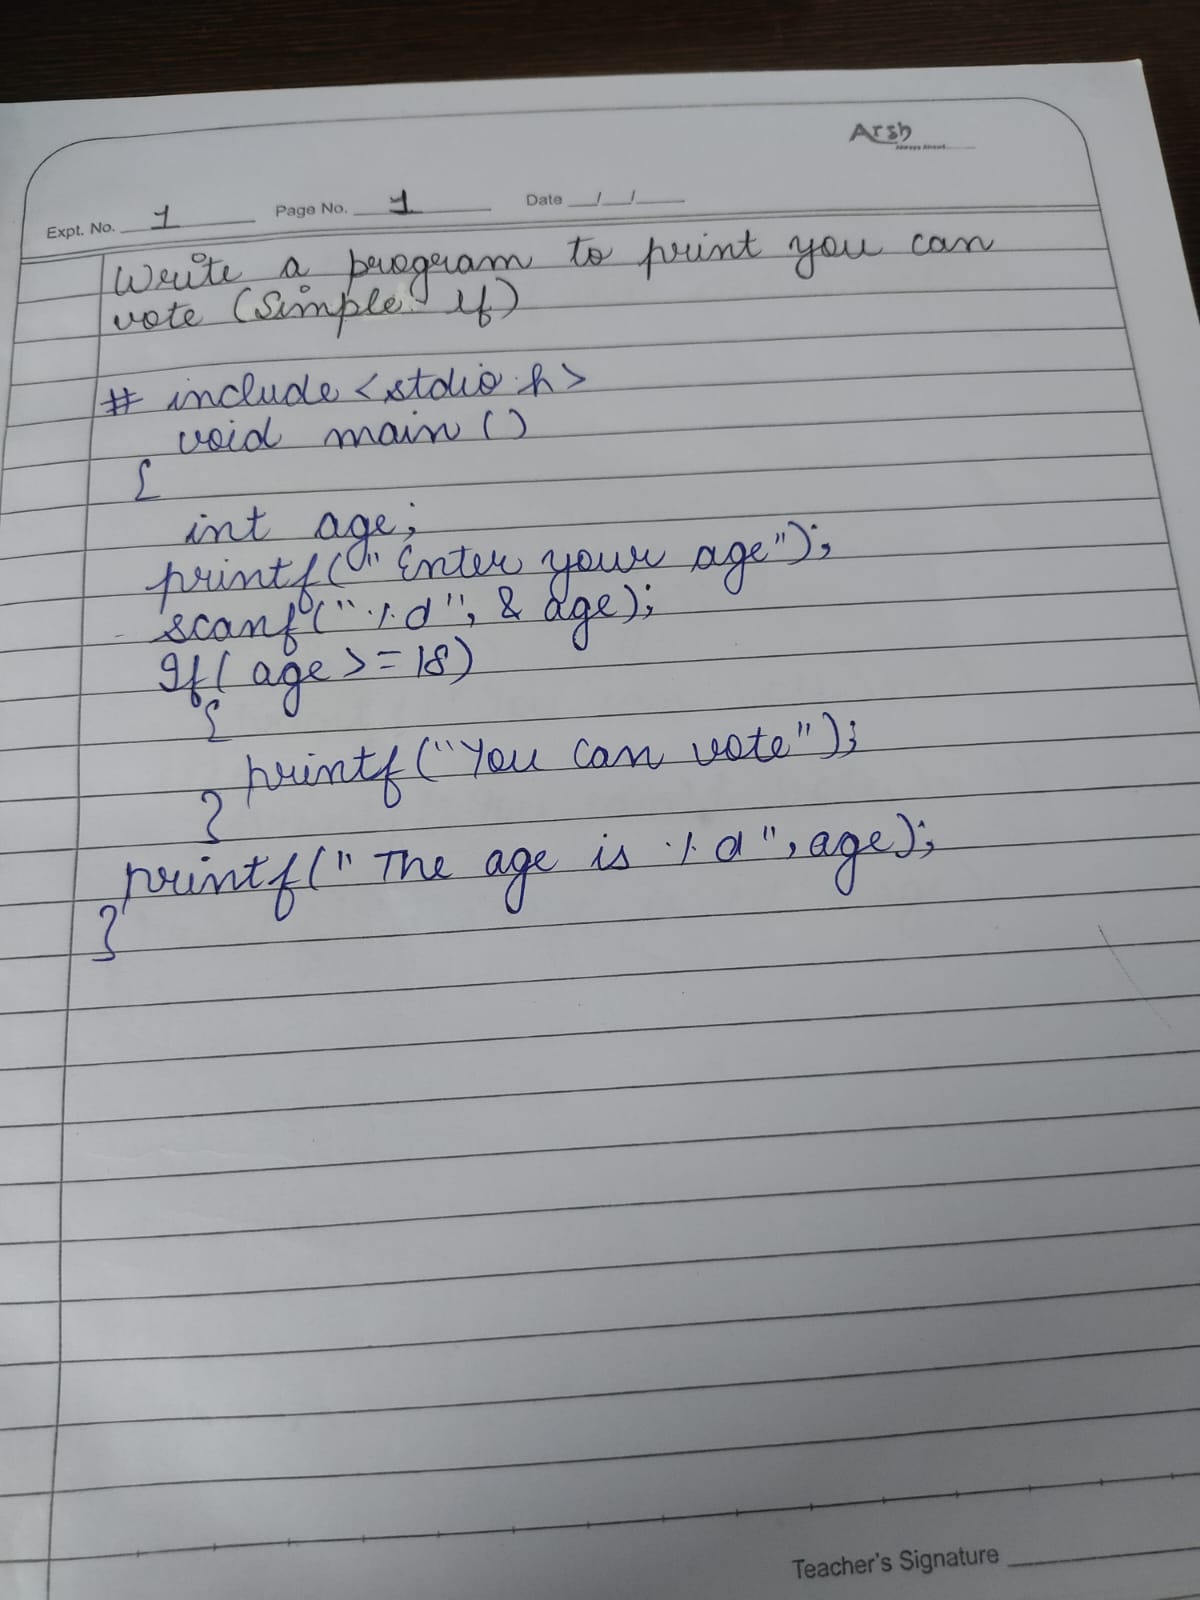 Arsh
Always Ahead
Expt. No. 1 Page No. 1 Date __/__/__
Write a program to print you can
vote (Simple If)
# include <stdio.h>
void main ()
{
int age;
printf("Enter your age");
scanf("%d", & age);
If( age >= 18)
{
printf("You can vote");
}
printf("The age is %d", age);
}
Teacher's Signature